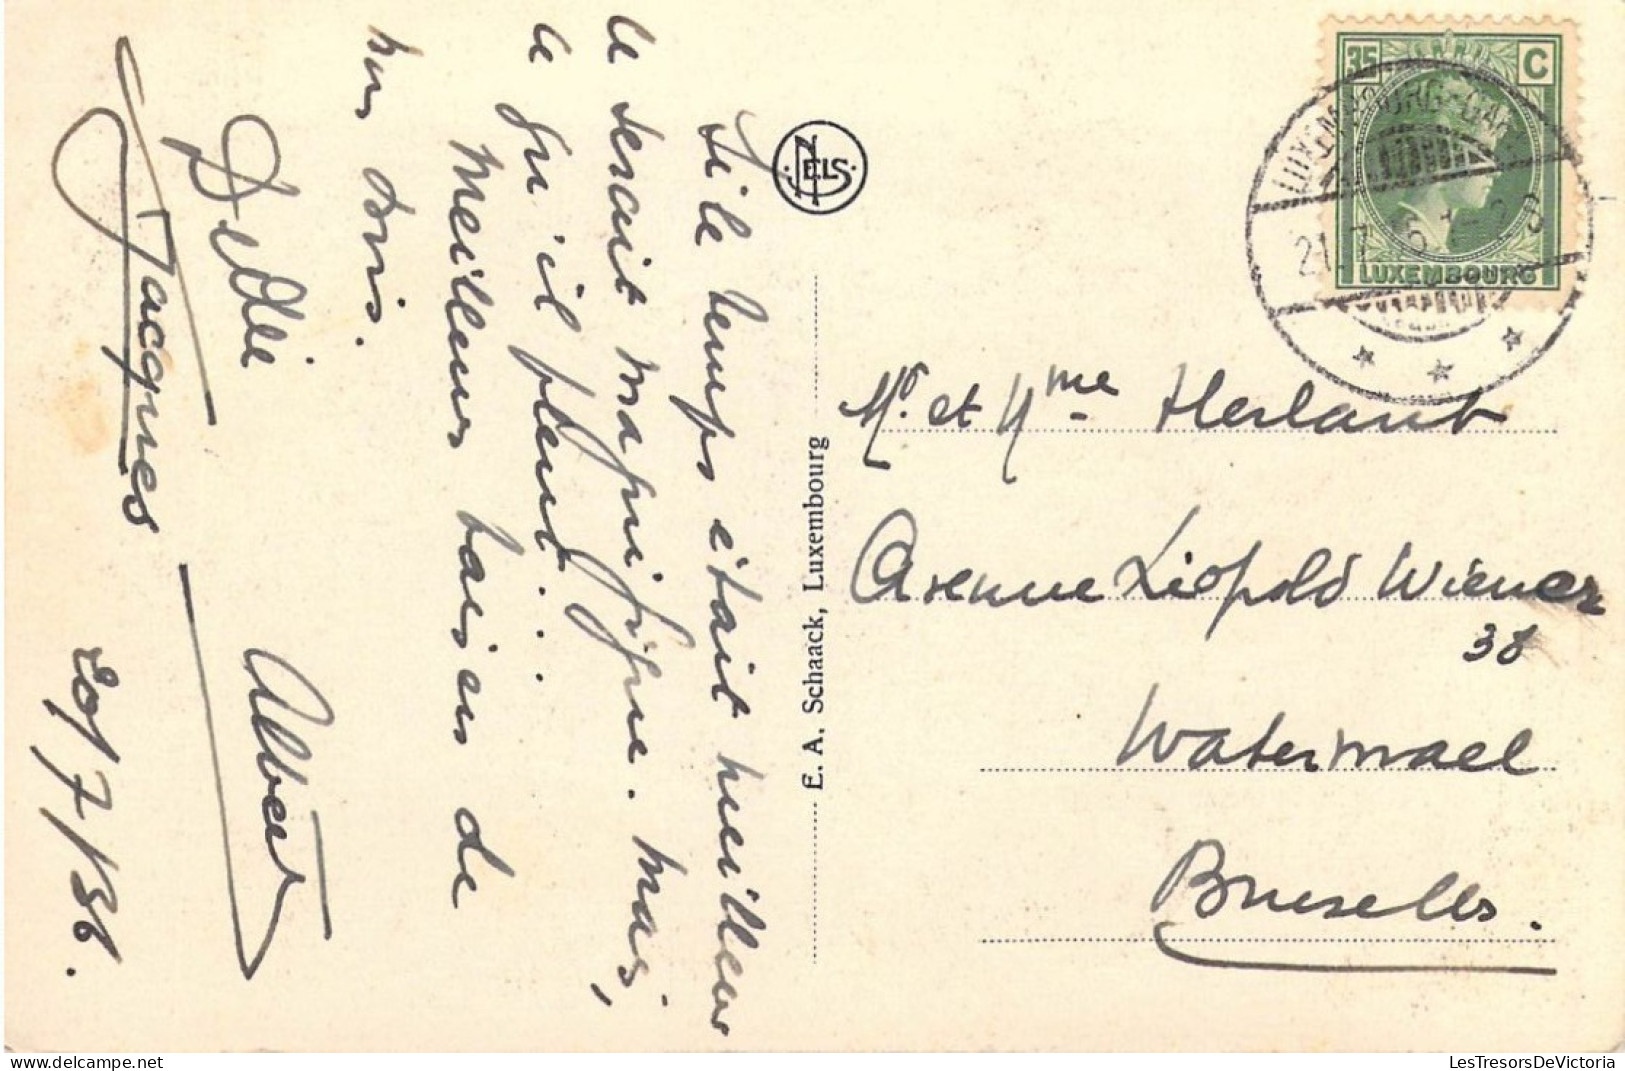 Si le temps était meilleur
ce serait magnifique. mais,
ce qu'il pleut...
Meilleurs baisers de
nous trois.
Dédé
Albert
Jacques
20/7/36.
NELS
E. A. Schaack, Luxembourg
35 C
LUXEMBOURG
LUXEMBOURG-GARE
21.7.36
Mr. et Mme Herlant
Avenue Léopold Wiener
38
Watermael
Bruxelles.
LesTresorsDeVictoria